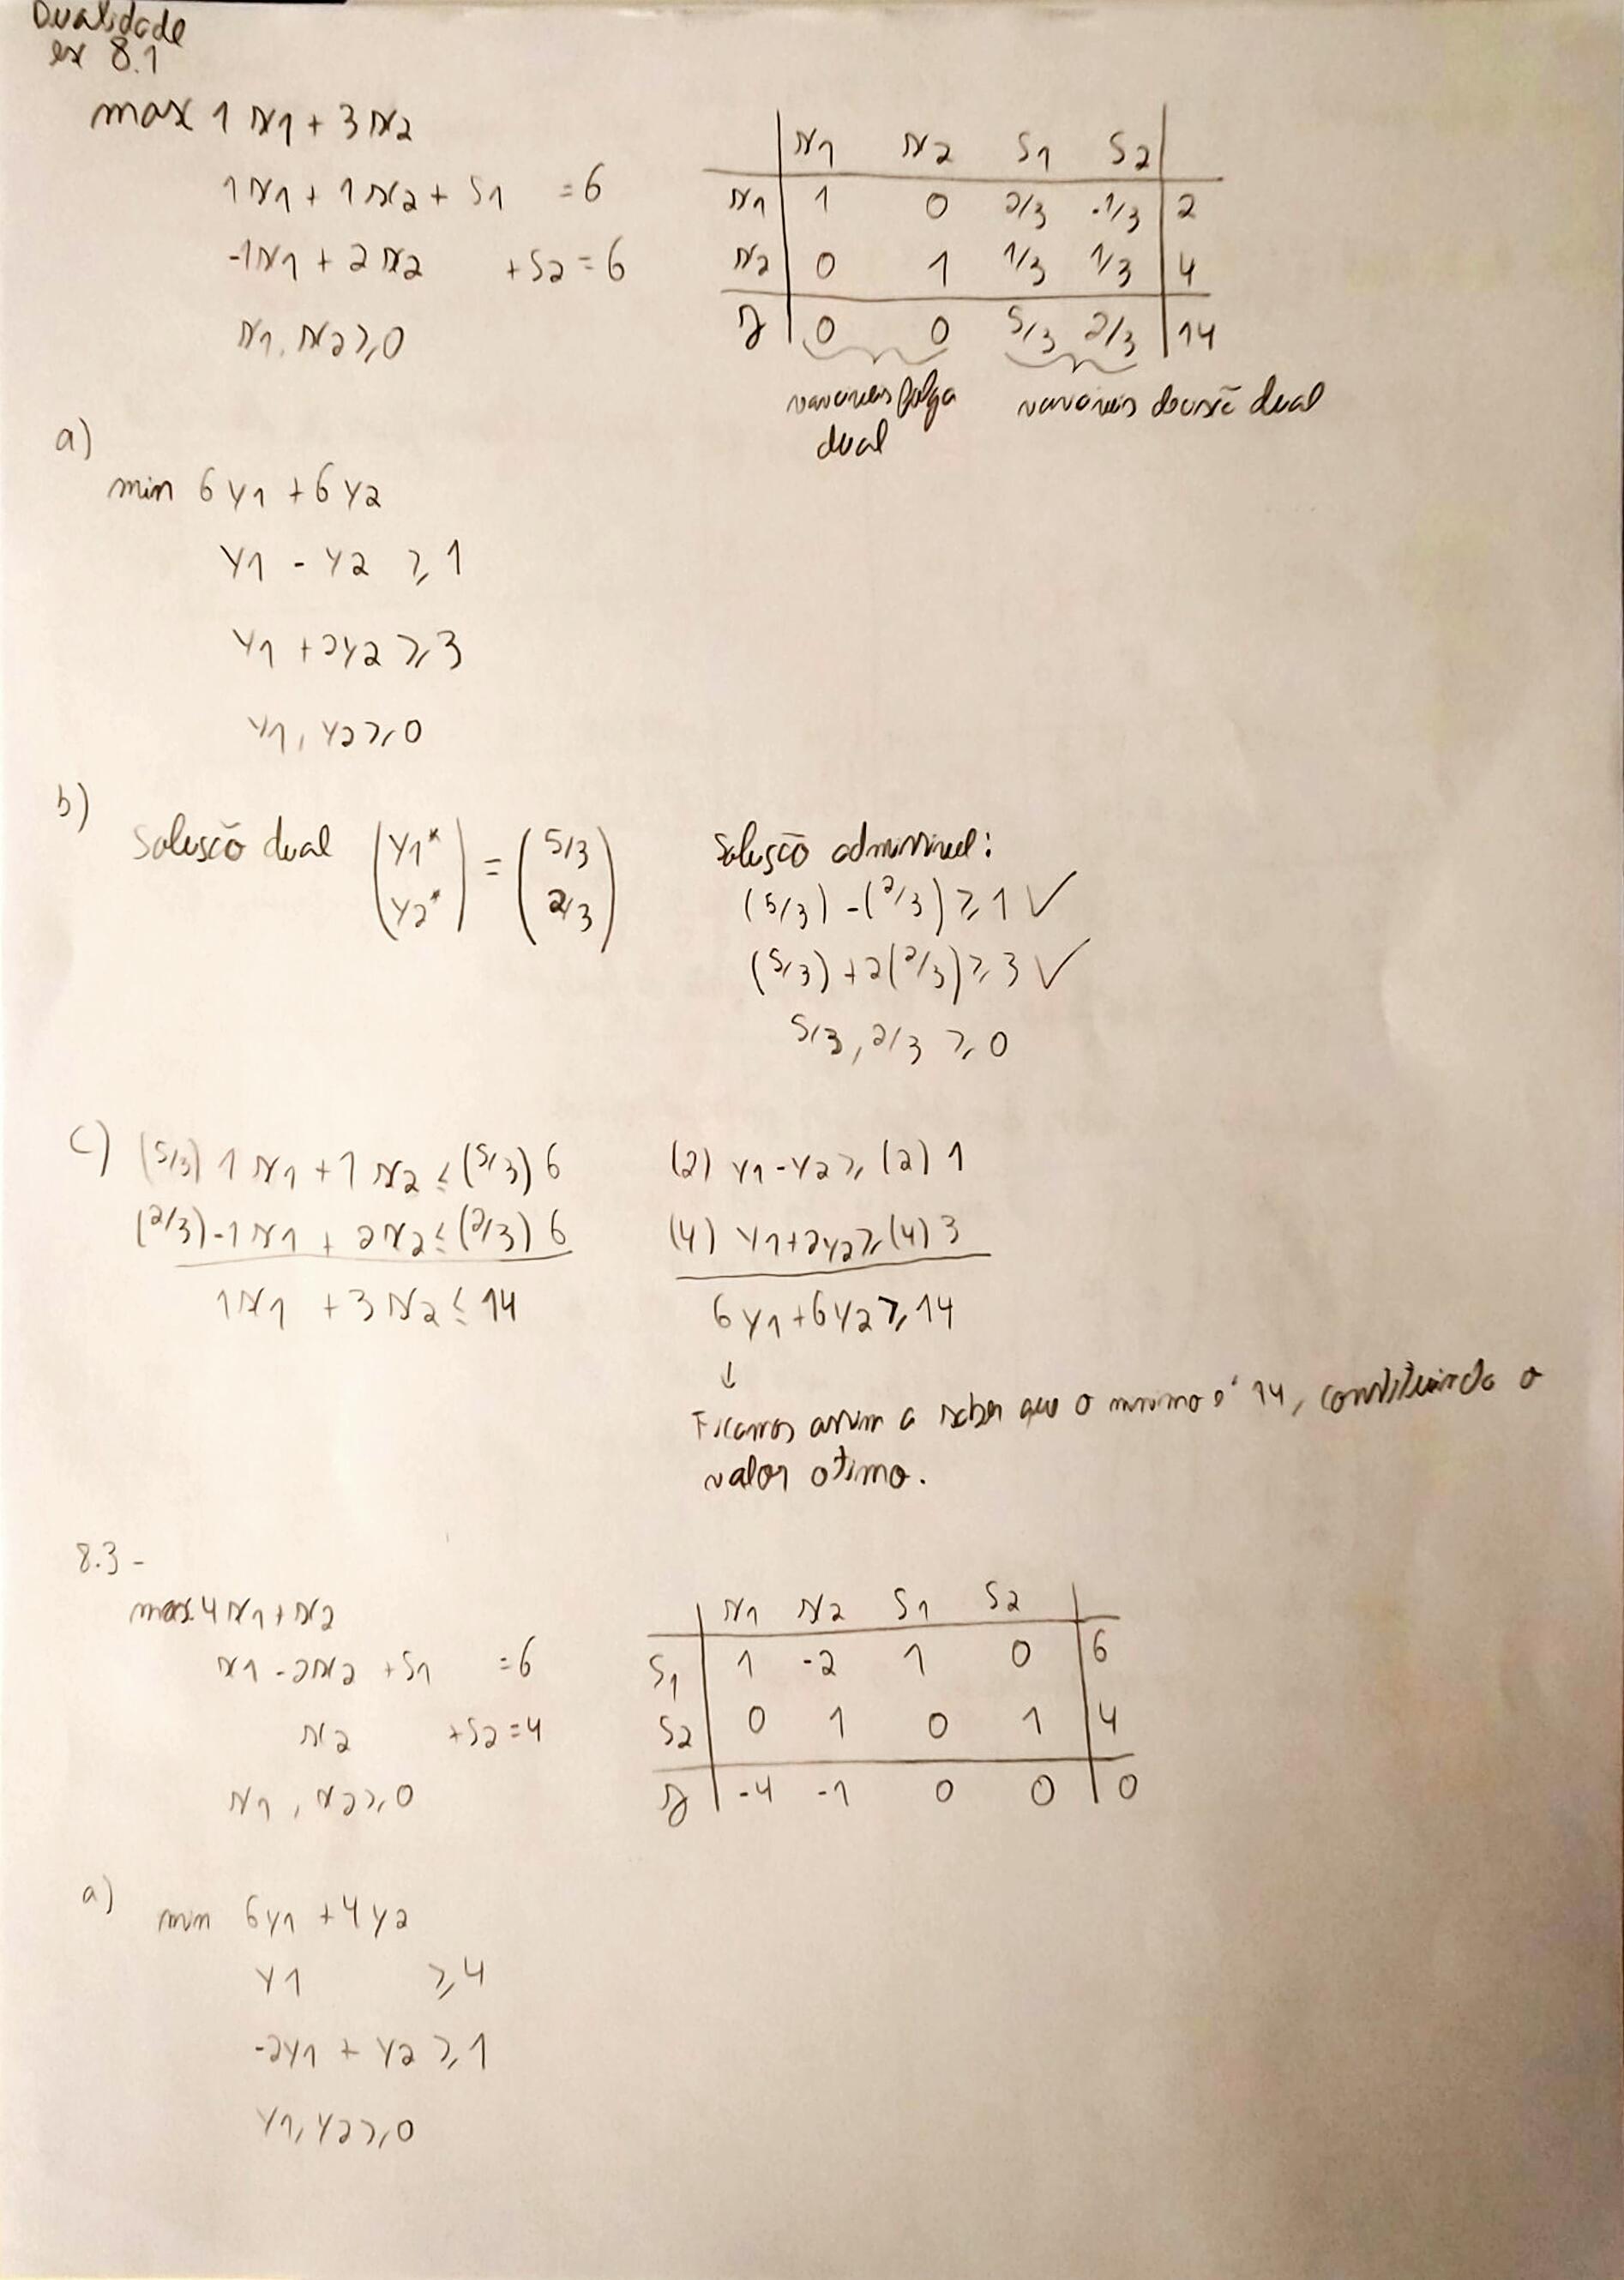 Dualidade
ex 8.1
max 1 x1 + 3 x2
1x1 + 1x2 + s1 = 6
-1x1 + 2x2 + s2 = 6
x1, x2 ≥ 0
x1 x2 s1 s2
x1 1 0 2/3 -1/3 2
x2 0 1 1/3 1/3 4
z 0 0 5/3 2/3 14
variáveis folga dual
variáveis decisão dual
a)
min 6y1 + 6y2
y1 - y2 ≥ 1
y1 + 2y2 ≥ 3
y1, y2 ≥ 0
b)
Solução dual (y1* y2*) = (5/3 2/3)
Solução admissível:
(5/3) - (2/3) ≥ 1 ✓
(5/3) + 2(2/3) ≥ 3 ✓
5/3, 2/3 ≥ 0
c)
(5/3) 1x1 + 1x2 ≤ (5/3) 6
(2/3) -1x1 + 2x2 ≤ (2/3) 6
1x1 + 3x2 ≤ 14
(2) y1 - y2 ≥ (2) 1
(4) y1 + 2y2 ≥ (4) 3
6y1 + 6y2 ≥ 14
↓
Ficamos assim a saber que o mínimo é 14, constituindo o
valor otimo.
8.3 -
max 4x1 + x2
x1 - 2x2 + s1 = 6
x2 + s2 = 4
x1, x2 ≥ 0
x1 x2 s1 s2
s1 1 -2 1 0 6
s2 0 1 0 1 4
z -4 -1 0 0 0
a)
min 6y1 + 4y2
y1 ≥ 4
-2y1 + y2 ≥ 1
y1, y2 ≥ 0